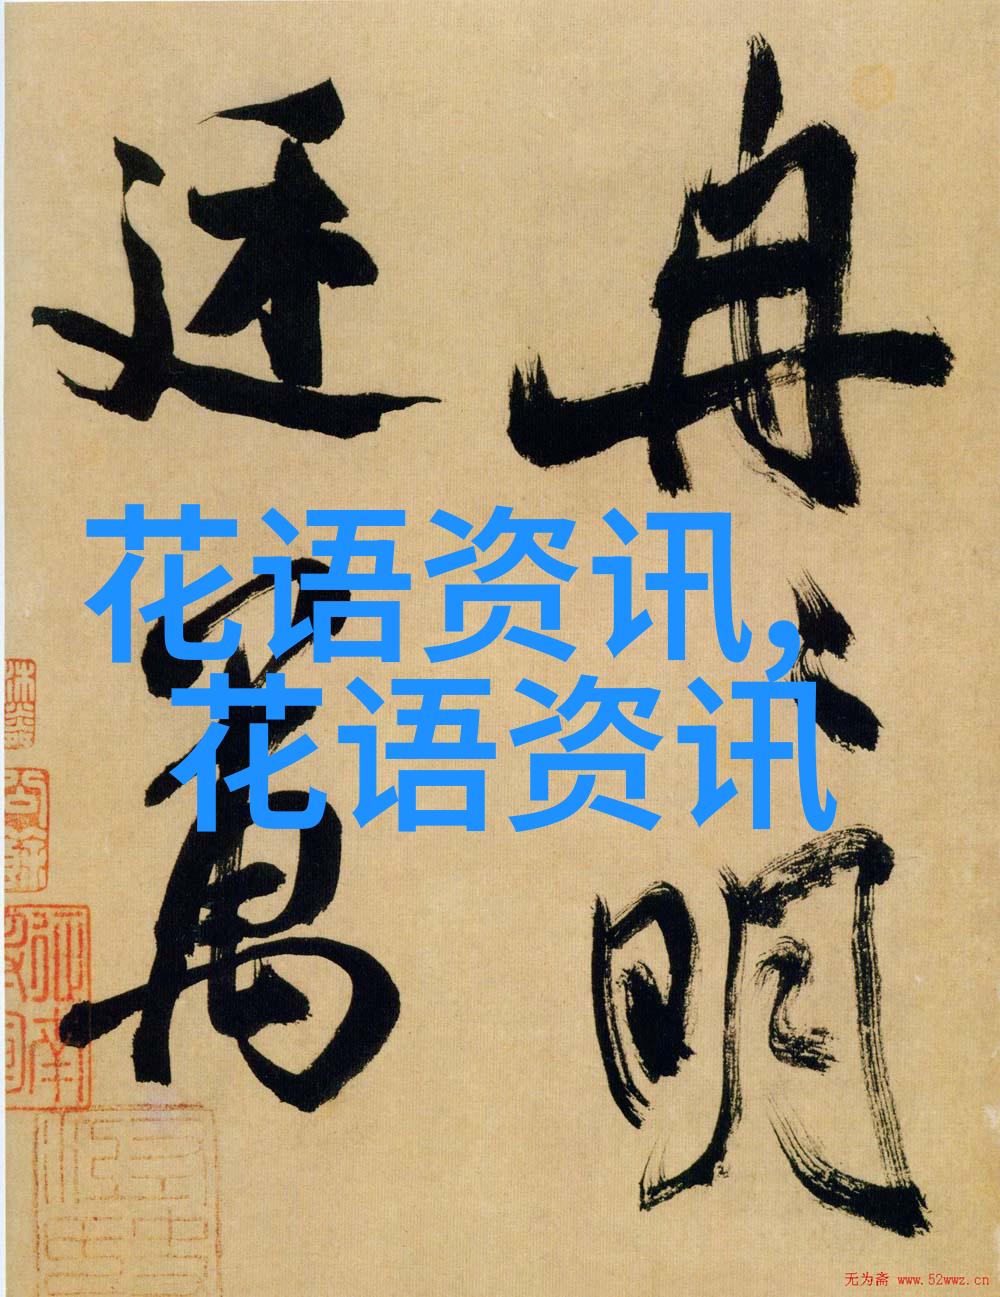 冉々明
廷萬
花语资讯,
花语资讯
无为斋 www.52wwz.cn